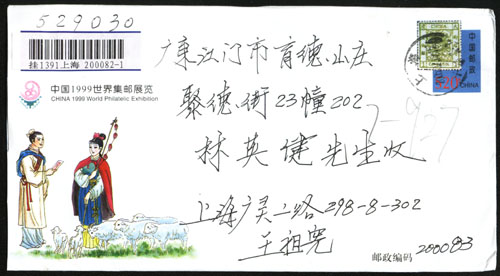 529030
挂1391上海 200082-1
中国1999世界集邮展览
CHINA 1999 World Philatelic Exhibition
中国邮政
520
上海
广东江门市育德小庄
聚德街23幢202
林英健先生收
上海广灵二路298-8-302
王祖宪
邮政编码 200083